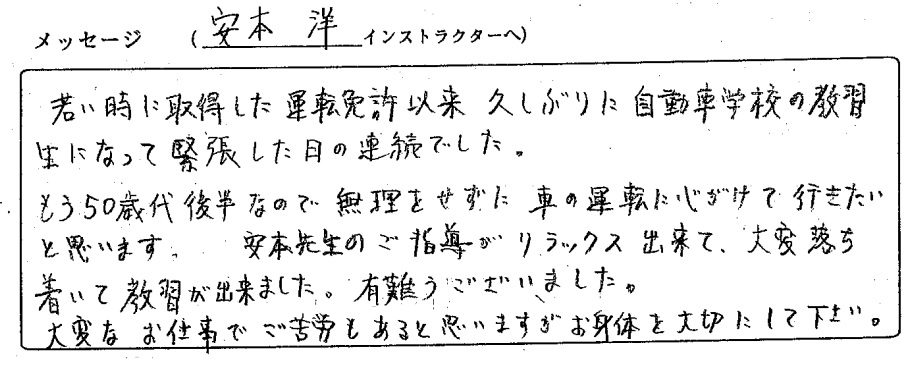 メッセージ (安本 洋インストラクターへ)
若い時に取得した運転免許以来 久しぶりに自動車学校の教習
生になって緊張した日の連続でした。
もう50歳代後半なので無理をせずに車の運転に心がけて行きたい
と思います。 安本先生のご指導がリラックス出来て、大変落ち
着いて教習が出来ました。有難うございました。
大変なお仕事でご苦労もあると思いますがお身体を大切にして下さい。